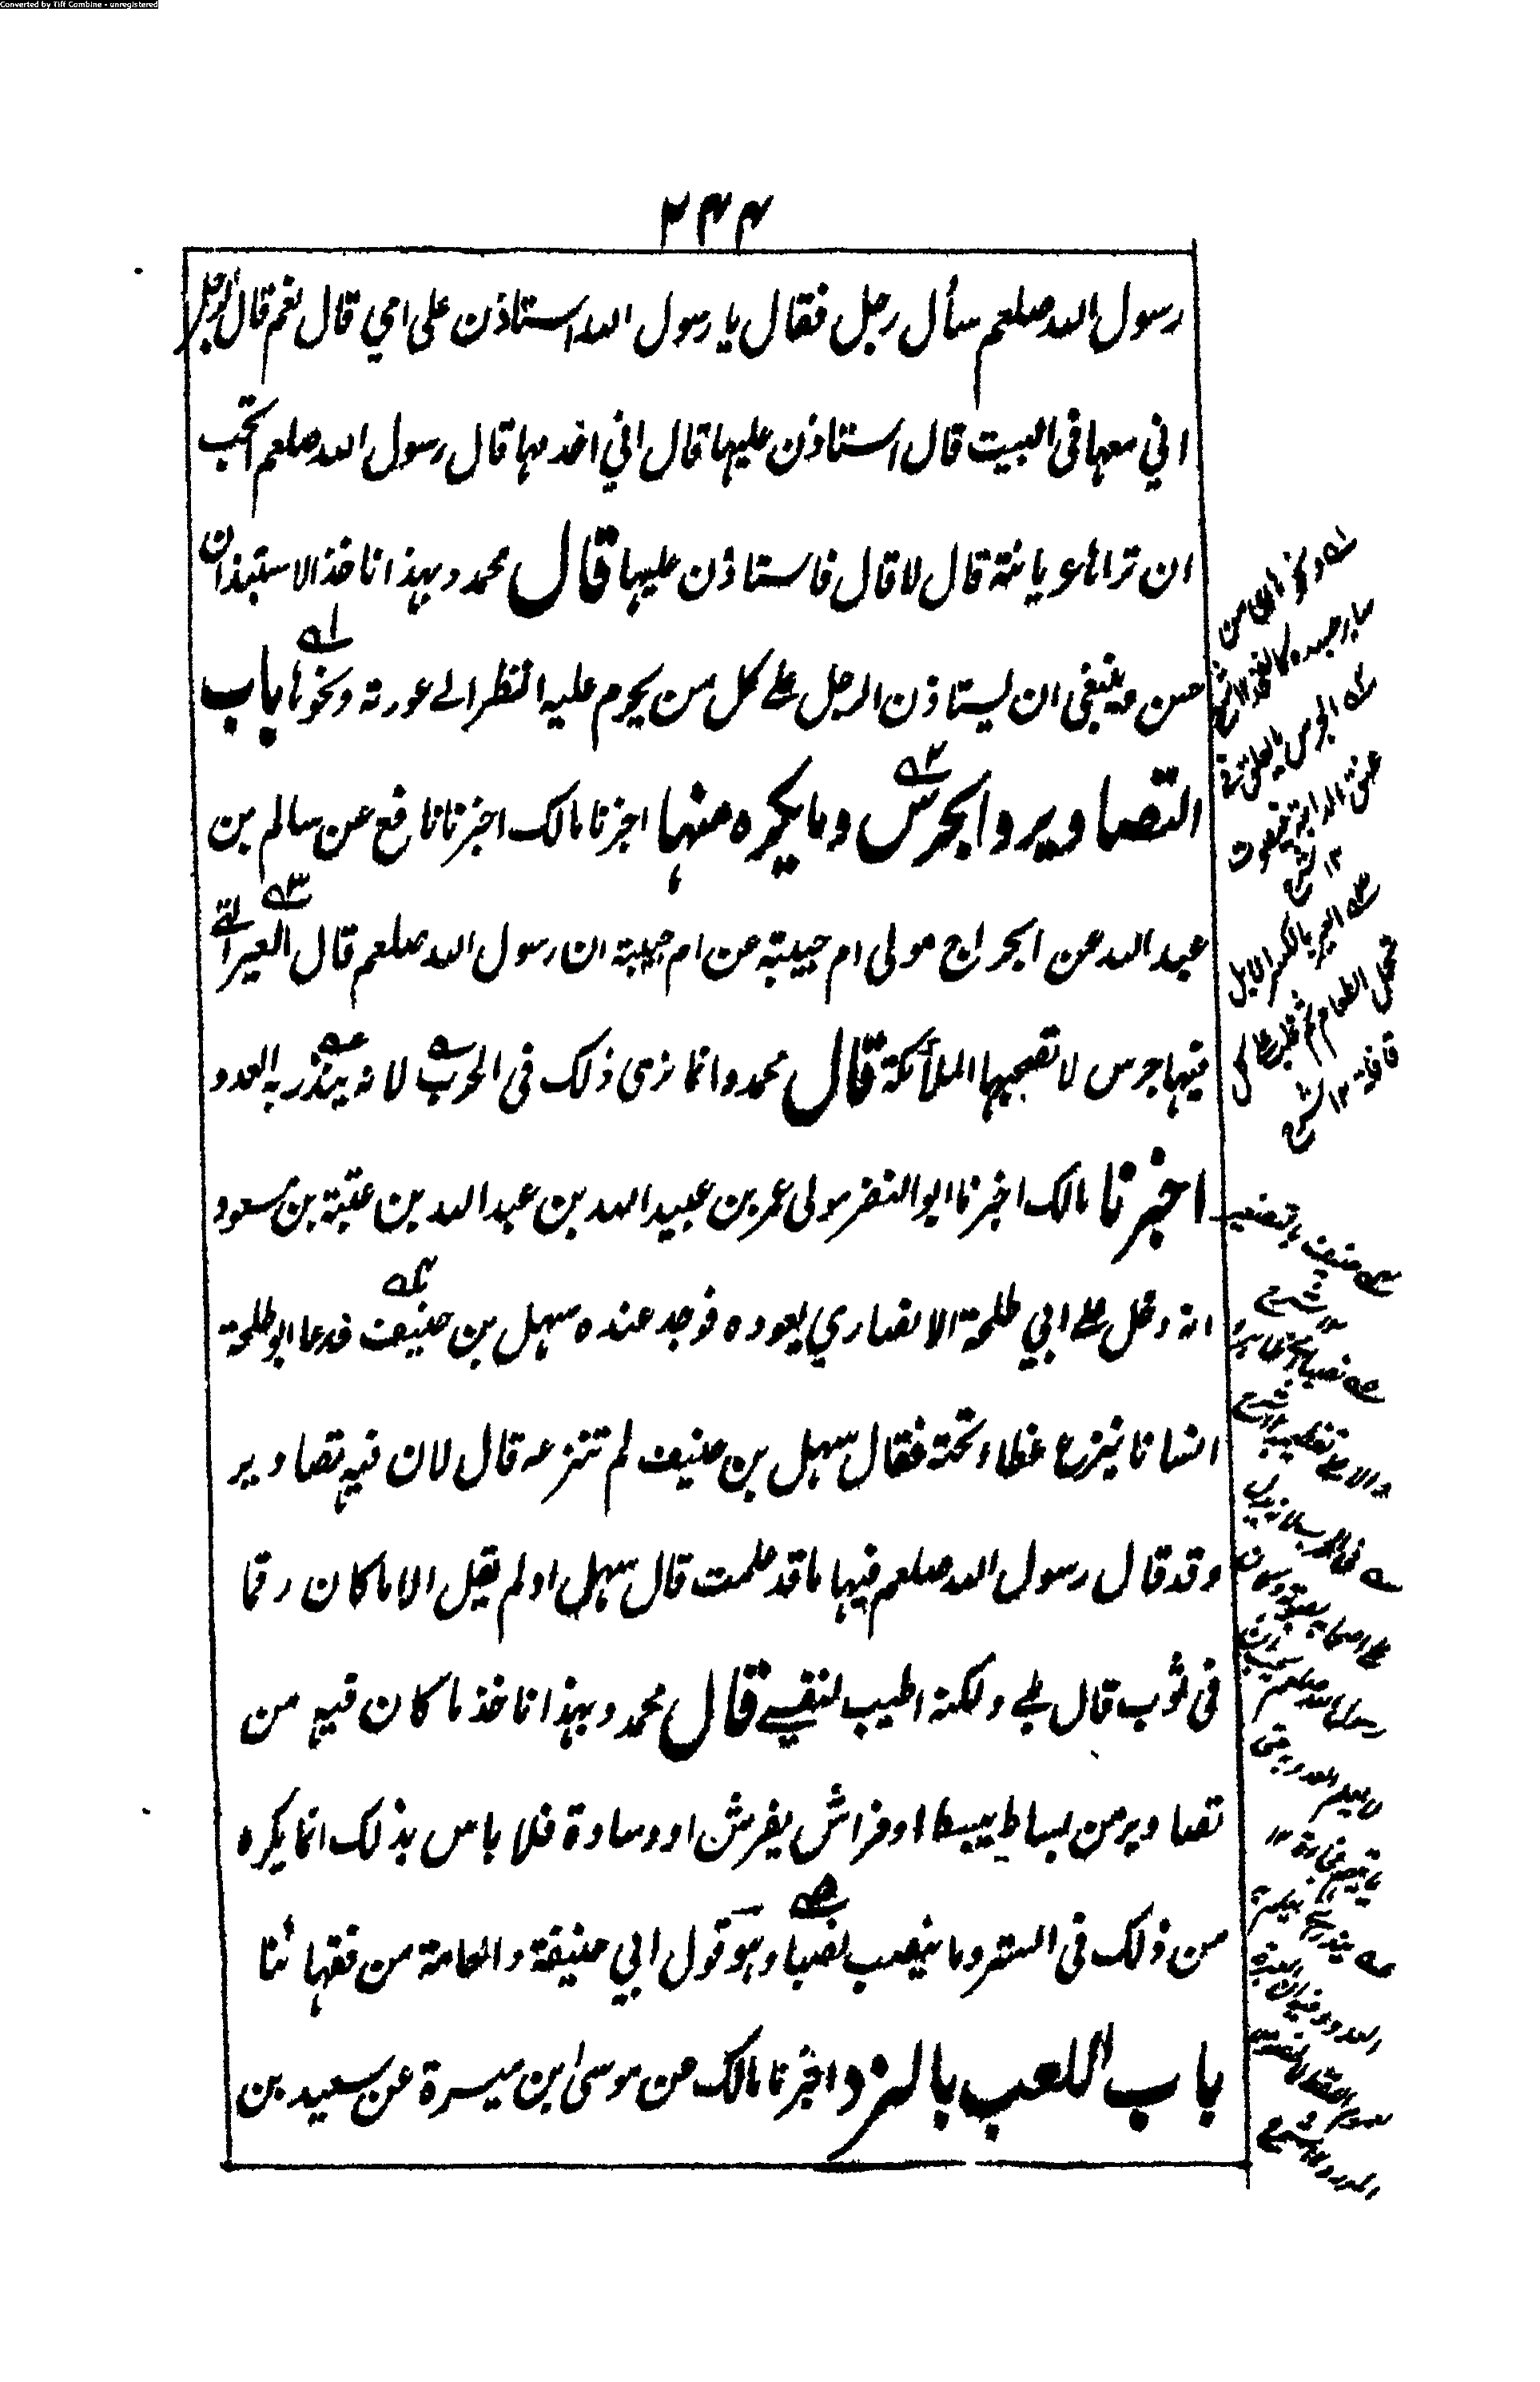 Converted by Tiff Combine - unregistered
۲۴۴
رسول الله صلعم سأل رجل فقال يا رسول الله استاذن على امي قال نعم قال الرجل
اني معها في البيت قال استاذن عليها قال اني اخدمها قال رسول الله صلعم اتحب
ان تراها عريانة قال لا قال فاستاذن عليها قال محمد وبهذا ناخذ الاستيذان
حسن وينبغي ان يستاذن الرجل على كل من يحرم عليه النظر الى عورته ونحوها باب
التصاوير والجرس وما يكره منها اخبرنا مالك اخبرنا نافع عن سالم بن
عبد الله عن الجراح مولى ام حبيبة عن ام حبيبة ان رسول الله صلعم قال العير التي
فيها جرس لا تصحبها الملائكة قال محمد وانما نرى ذلك في الحرب لانه ينذر به العدو
اخبرنا مالك اخبرنا ابو النضر مولى عمر بن عبيد الله بن عبد الله بن عتبة بن مسعود
انه دخل على ابي طلحة الانصاري يعوده فوجد عنده سهل بن حنيف فدعا ابو طلحة
انسانا ينزع غطاء تحته فقال سهل بن حنيف لم تنزعه قال لان فيه تصاوير
وقد قال رسول الله صلعم فيها ما قد علمت قال سهل اولم يقل الا ما كان رقما
في ثوب قال بلى ولكنه اطيب لنفسي قال محمد وبهذا ناخذ ما كان فيه من
تصاوير من بساط يبسط او فراش يفرش او وسادة فلا باس بذلك انما يكره
من ذلك في الستر وما ينصب نصبا وهو قول ابي حنيفة والعامة من فقهائنا
باب اللعب بالنرد اخبرنا مالك عن موسى ابن ميسرة عن سعيد بن
الجرس ما يعلق في
عنق الدابة فيصوت
العير بالكسر الابل
تحمل الطعام ثم غلب على كل
قافلة ۱۲
حنيف بالتصغير